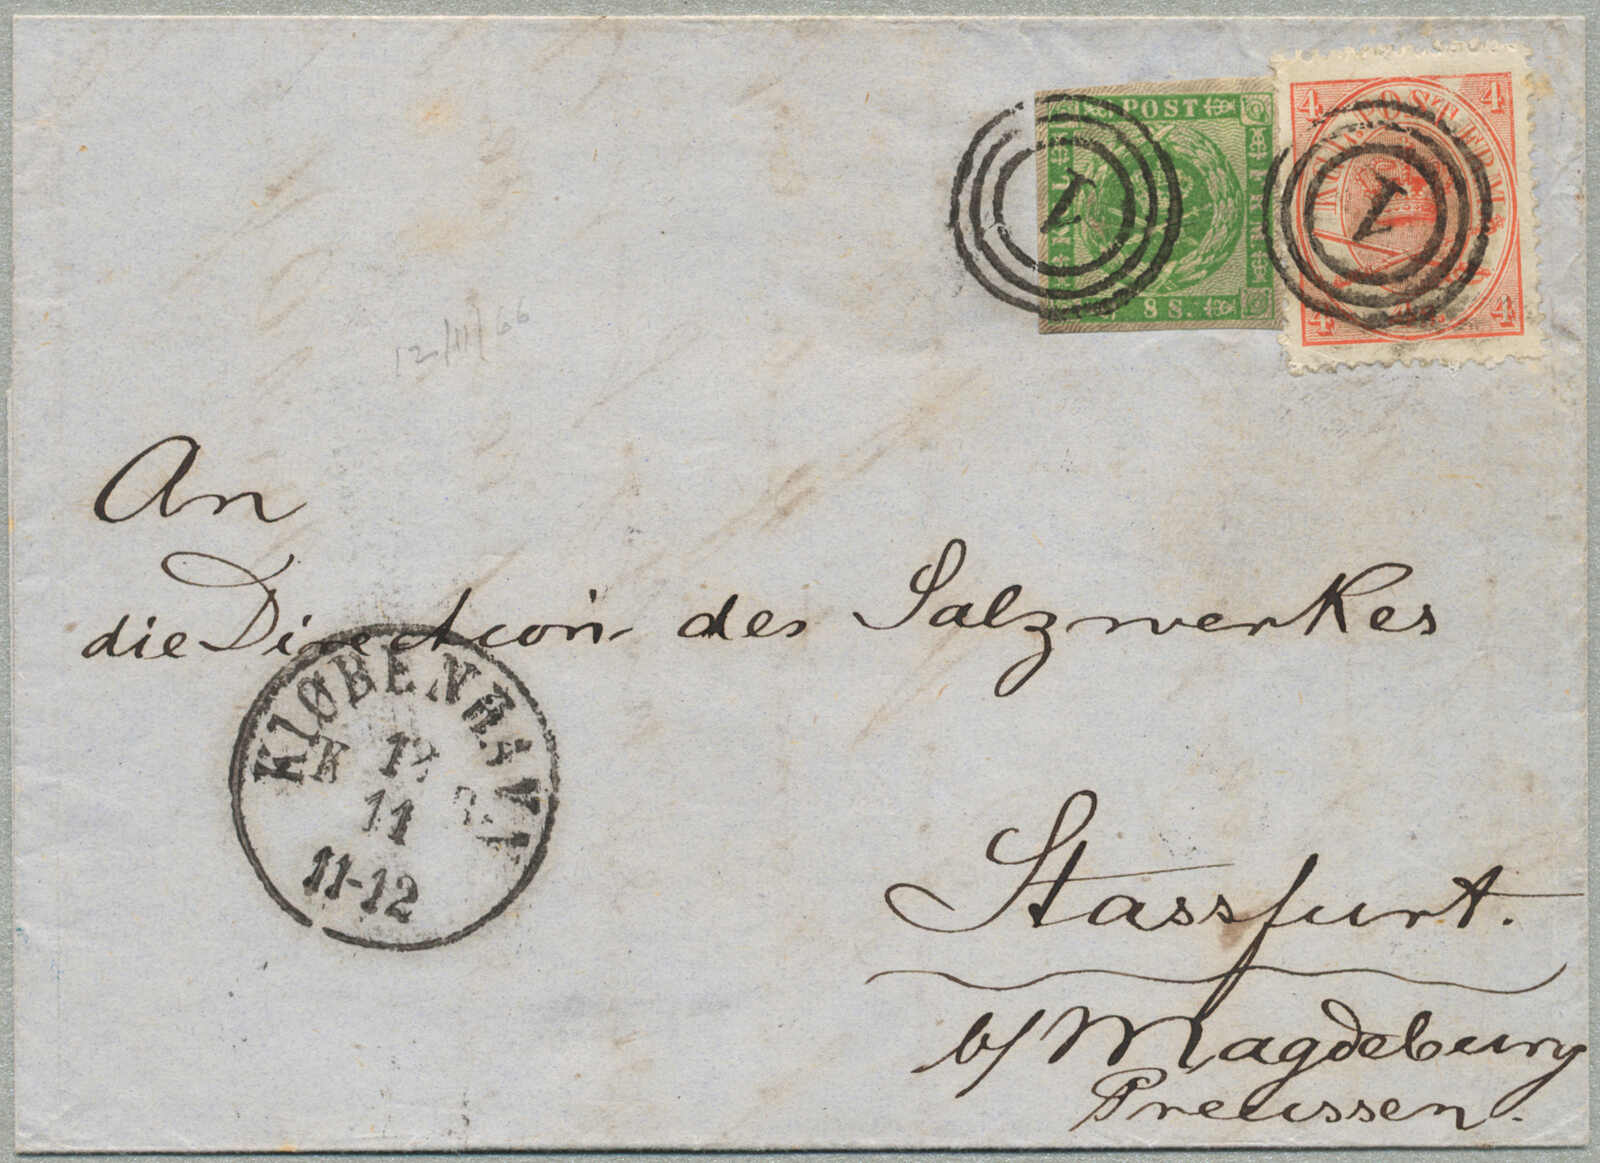 KGL. POST FRM.
8 S.
1
4 4
KGL. POST FRM.
4 4
1
12/11/66
An
die Direction des Salzwerkes
KIØBENHAVN
K 12
11
11-12
Stassfurt.
b/ Magdeburg
Preussen.